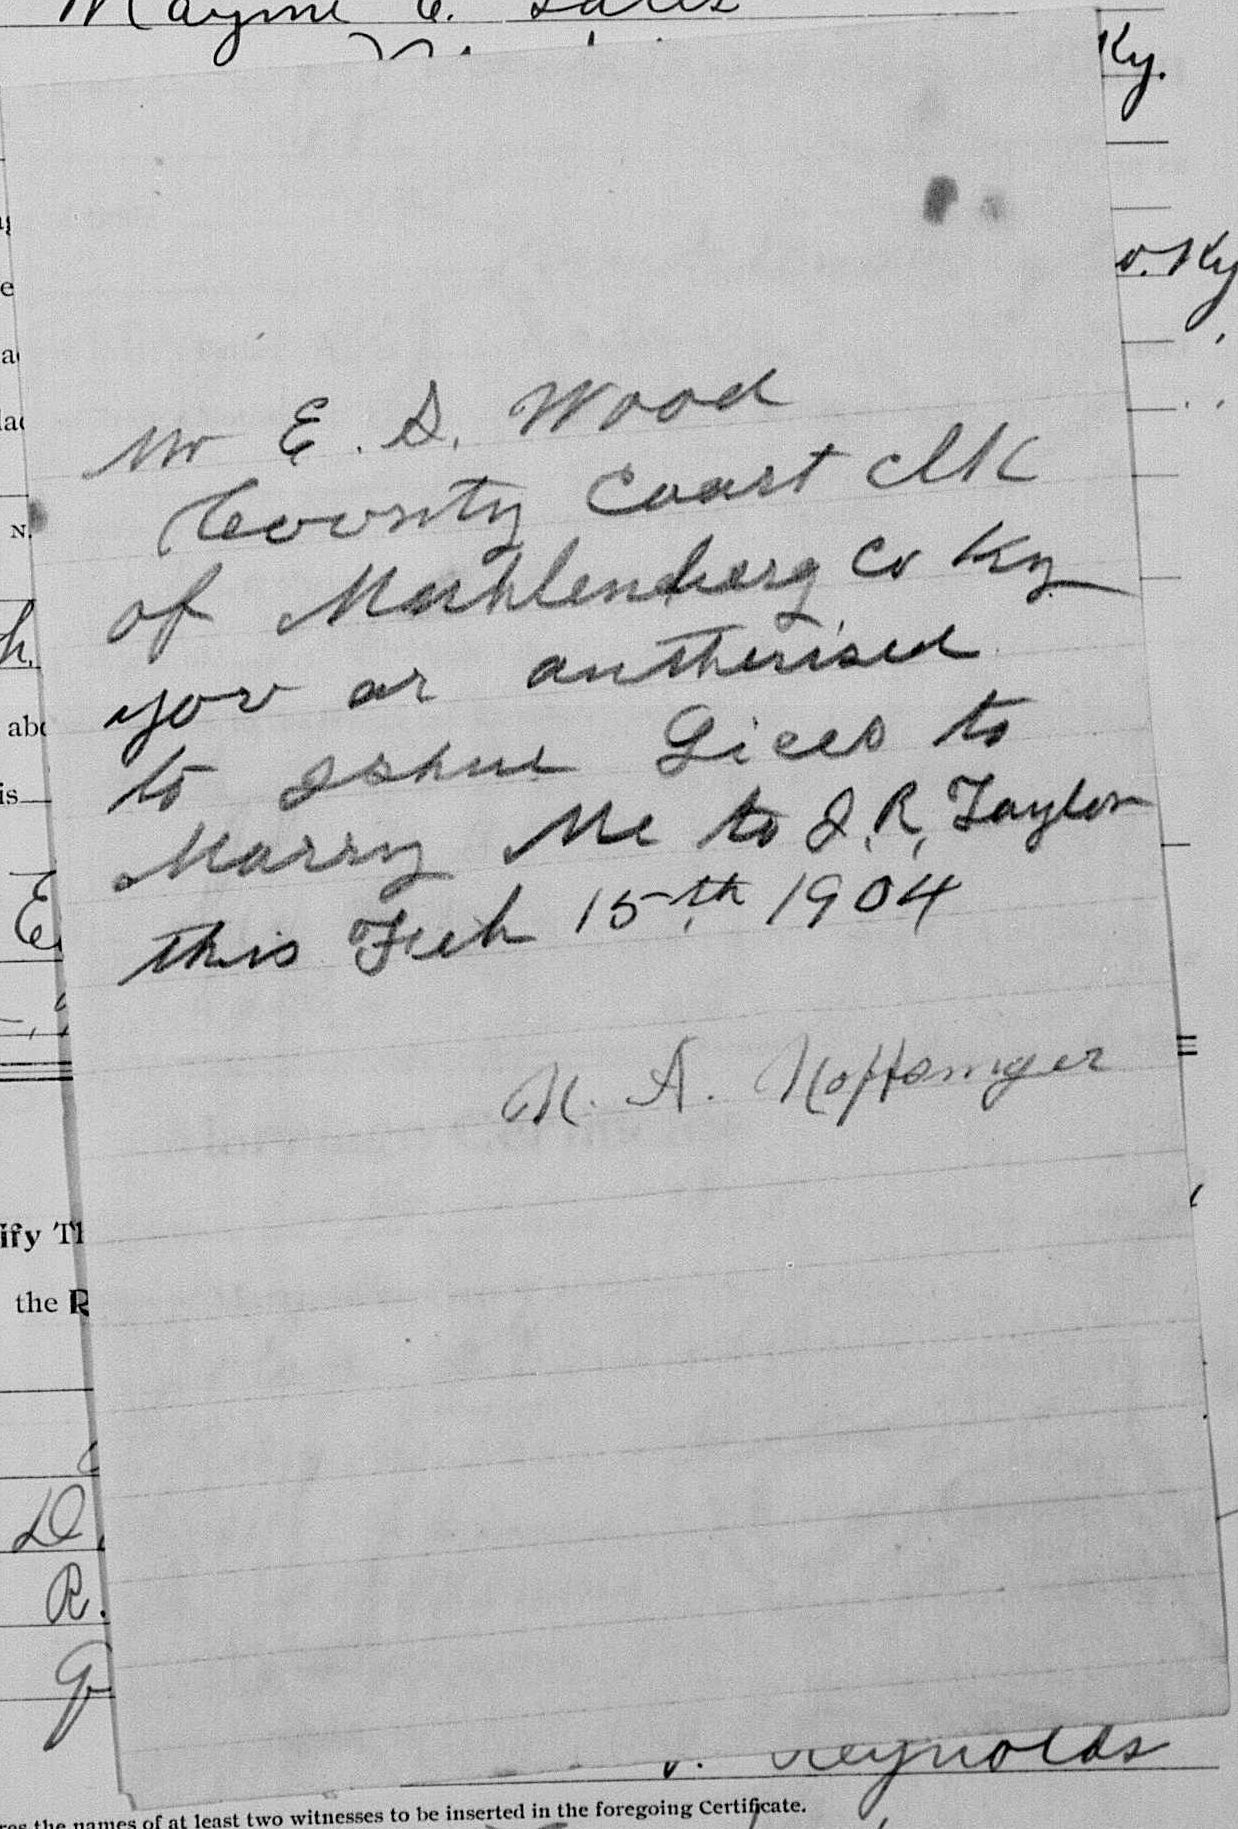 Mayme E.
Ky.
o. Ky
Mr E. S. Wood
County Court Clk
of Muhlenberg Co Ky
you ar autherised
to Ishue Lices to
Marry Me to J. R. Taylor
this Feb 15th 1904
N. A. Noffsinger
N.
h.
abo
is
E
ify Th
the R
D.
R.
Reynolds
res the names of at least two witnesses to be inserted in the foregoing Certificate.